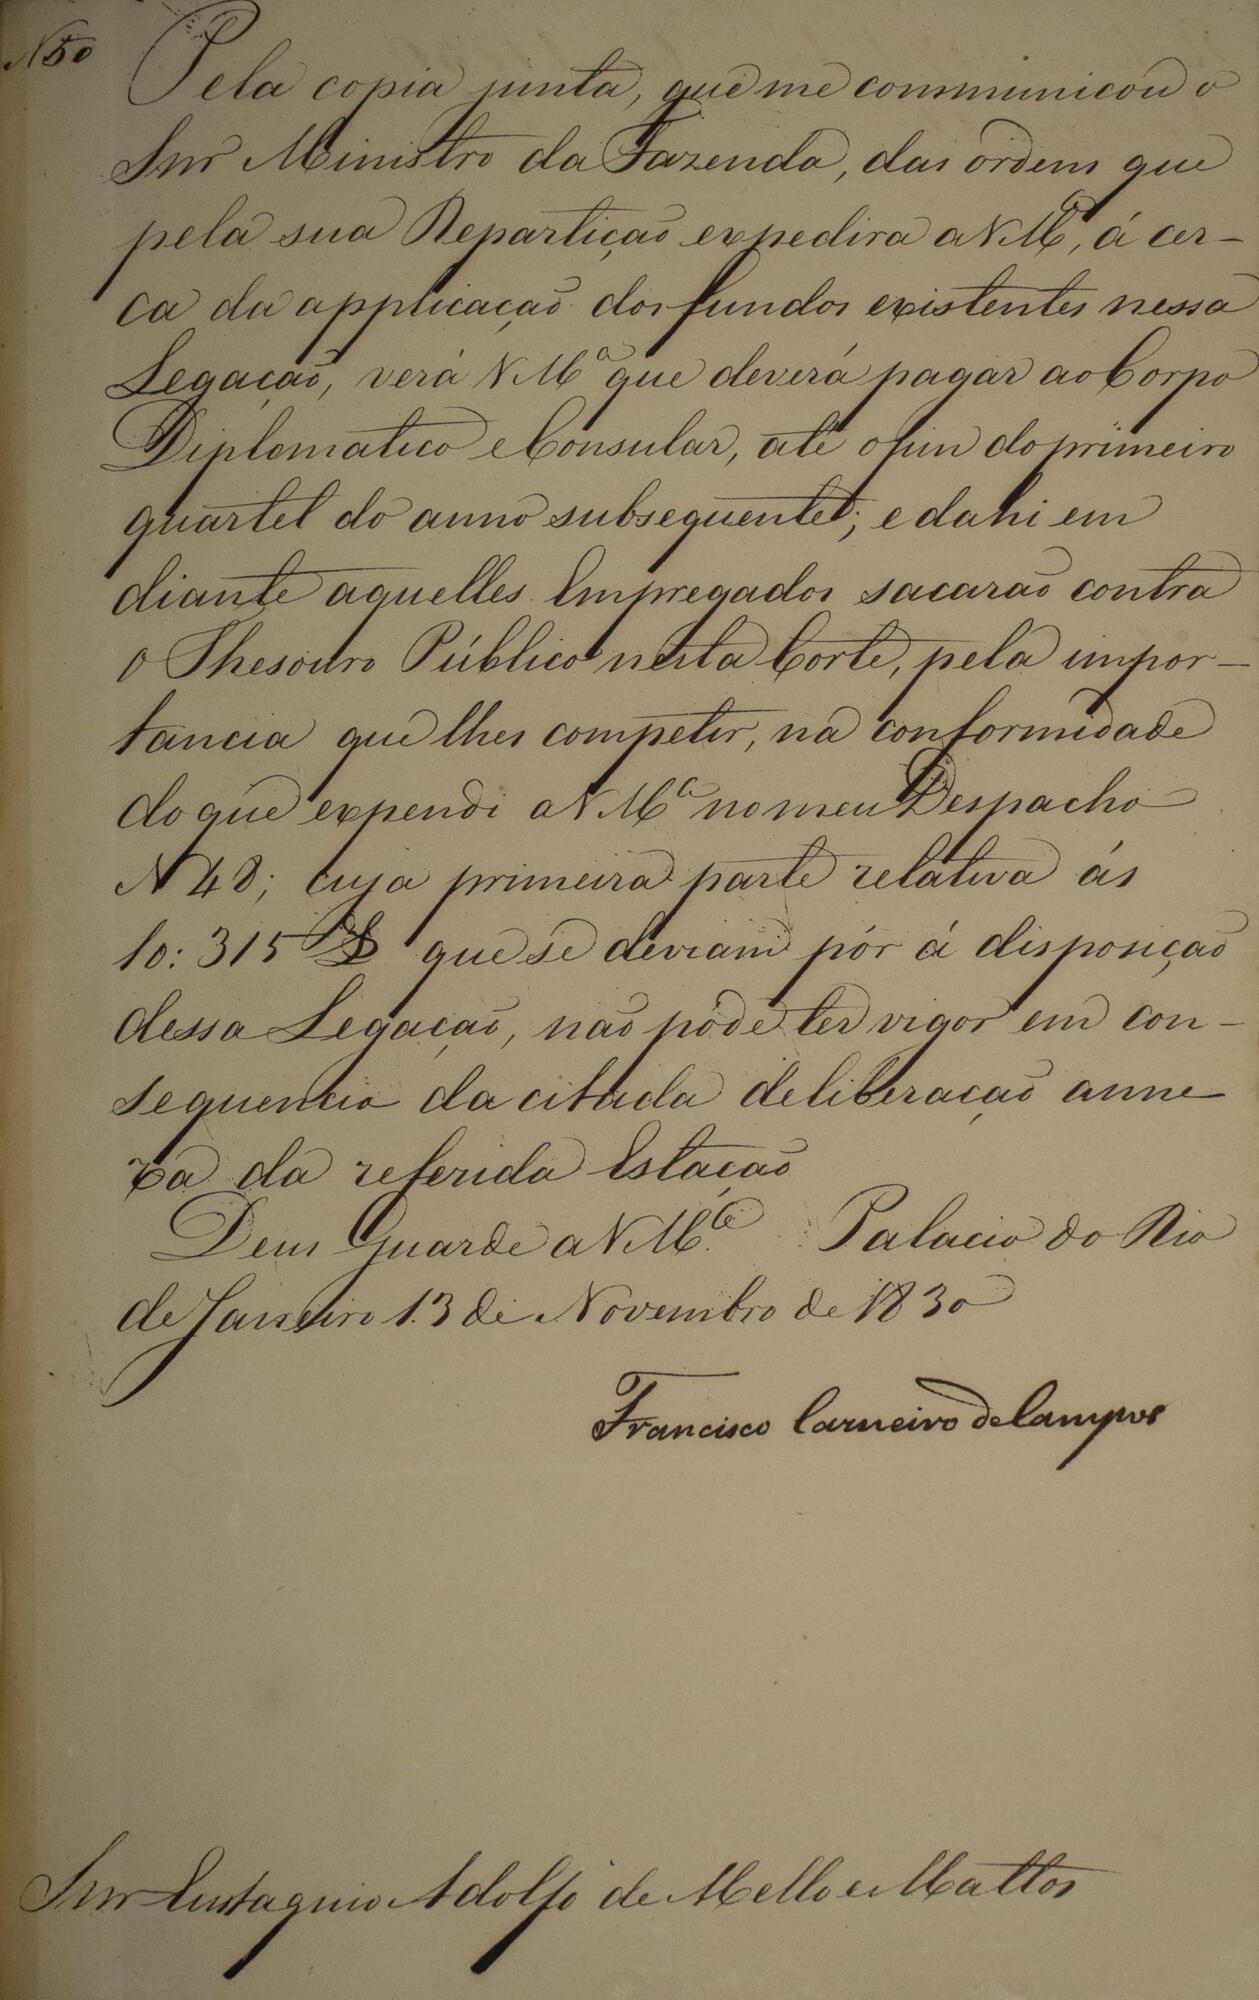 N 50
Pela copia junta, que me communicou o
Snr Ministro da Fazenda, das ordens que
pela sua Repartição expedira a V Mce, á cer-
ca da applicação dos fundos existentes nessa
Legação, verá V Mce que deverá pagar ao Corpo
Diplomatico e Consular, até o fim do primeiro
quartel do anno subsequente; e dahi em
diante aquelles Empregados sacarão contra
o Thesouro Público nesta Corte, pela impor-
tancia que lhes competir, na conformidade
do que expendi a V Mce no meu Despacho
N 48; cuja primeira parte relativa ás
10:315 £ que se deviam pôr á disposição
dessa Legação, não póde ter vigor em con-
sequencia da citada deliberação anne-
xa da referida Estação
Deus Guarde a V Mce. Palacio do Rio
de Janeiro 13 de Novembro de 1830
Francisco Carneiro de Campos
Snr Eustaquio Adolfo de Mello e Mattos